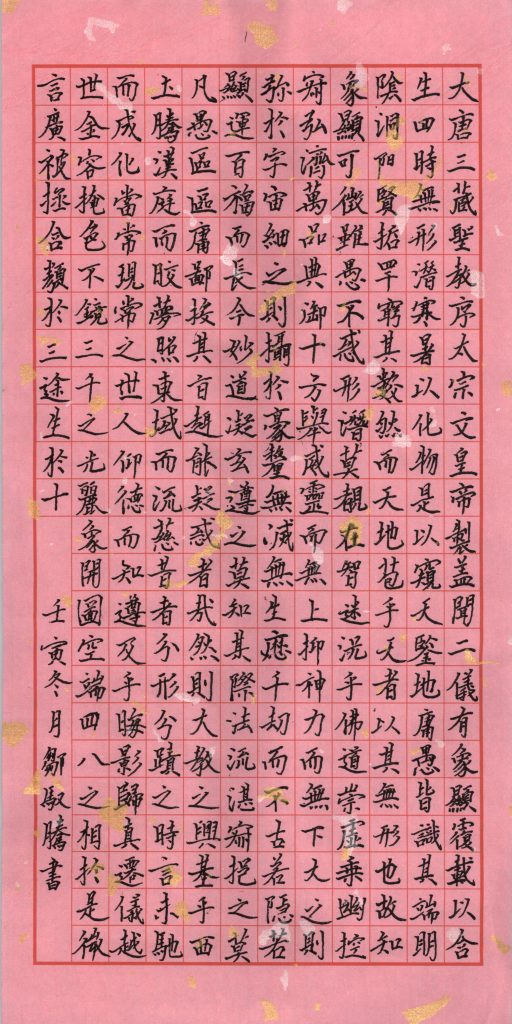 大唐三藏聖教序太宗文皇帝製盖聞二儀有象顯覆載以含
生四時無形潛寒暑以化物是以窺天鑒地庸愚皆識其端明
陰洞阳賢哲罕窮其數然而天地苞乎天者以其無形也故知
象顯可徵雖愚不惑形潛莫覩在智迷況乎佛道崇虛乘幽控
寂弘濟萬品典御十方舉威靈而無上抑神力而無下大之則
弥於宇宙細之則攝於豪釐無滅無生歷千劫而不古若隱若
顯運百福而長今妙道凝玄遵之莫知其際法流湛寂挹之莫
凡愚區區庸鄙投其旨趣能疑惑者哉然則大教之興基乎西
土騰漢庭而皎夢照東域而流慈昔者分形分蹟之時言未馳
而成化當常現常之世人仰德而知遵及乎晦影歸真遷儀越
世金容掩色不鏡三千之光麗象開圖空端四八之相於是微
言廣被拯含類於三途生於十
壬寅冬月鄒馭騰書